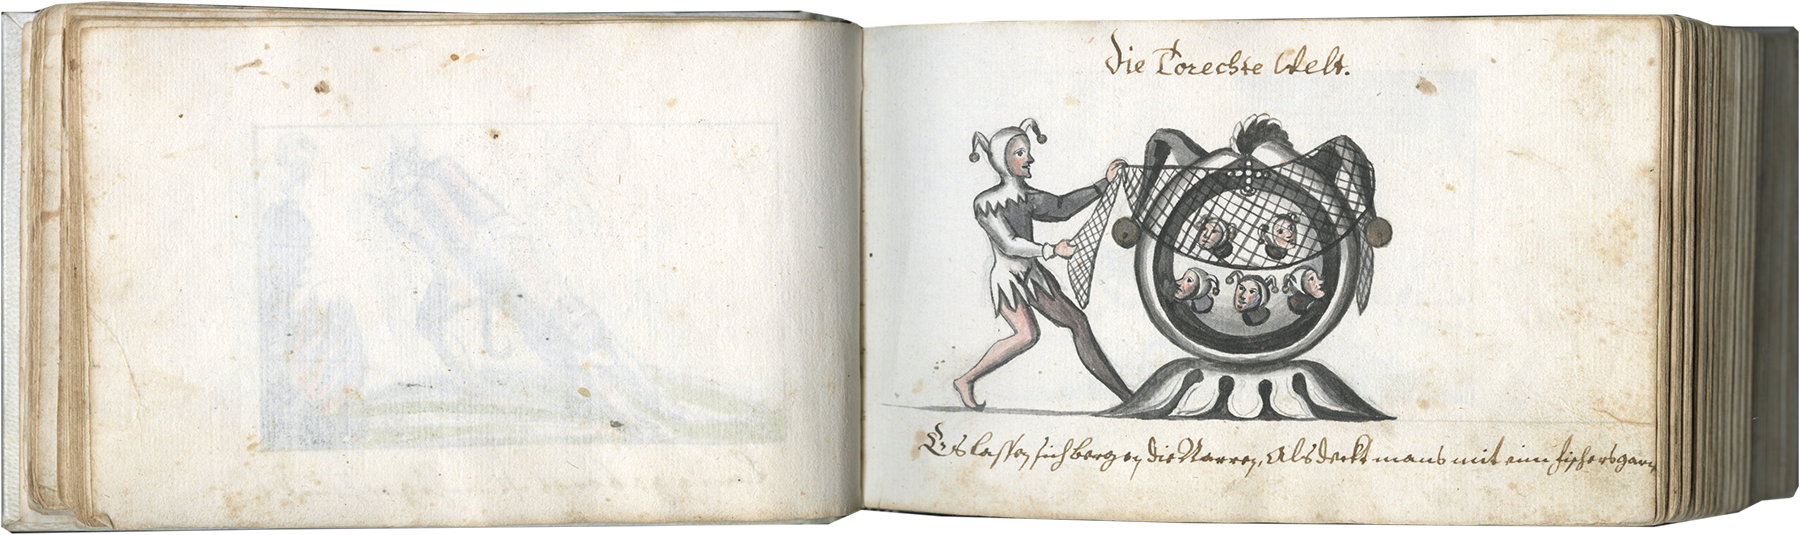 Die Torechte Welt.
Es lassen sich bergen die Narren, Als deckt mans mit eim fischersgarn